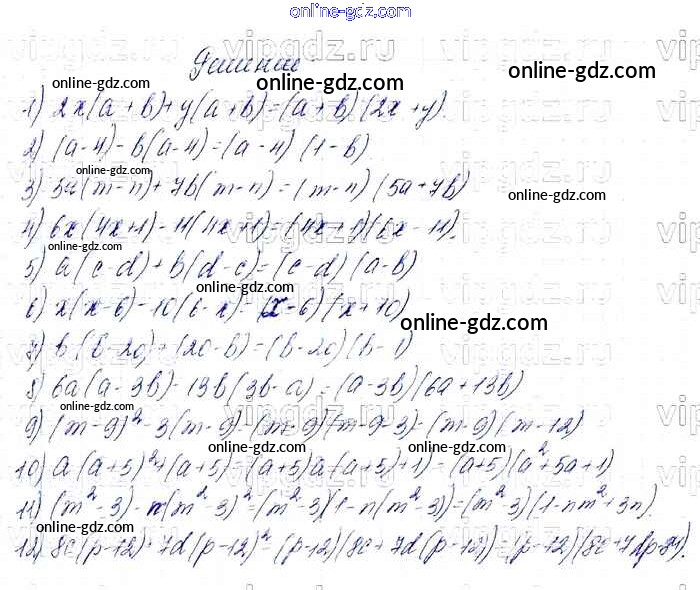 online-gdz.com
Решение
online-gdz.com
online-gdz.com
1) 2x(a+b)+y(a+b)=(a+b)(2x+y).
2) (a-4)-b(a-4)=(a-4)(1-b)
online-gdz.com
3) 5a(m-n)+7b(m-n)=(m-n)(5a+7b)
online-gdz.com
4) 6x(4x+1)-11(4x+1)=(4x+1)(6x-11).
online-gdz.com
5) a(c-d)+b(d-c)=(c-d)(a-b)
online-gdz.com
6) x(x-6)-10(6-x)=(x-6)(x+10)
online-gdz.com
7) b(b-20)+(20-b)=(b-20)(b-1)
8) 6a(a-3b)-13b(3b-a)=(a-3b)(6a+13b)
online-gdz.com
9) (m-9)²-3(m-9)=(m-9)(m-9-3)=(m-9)(m-12)
online-gdz.com
online-gdz.com
10) a(a+5)²+(a+5)=(a+5)(a(a+5)+1)=(a+5)(a²+5a+1)
11) (m²-3)-n(m²-3)²=(m²-3)(1-n(m²-3))=(m²-3)(1-nm²+3n).
online-gdz.com
online-gdz.com
12) 8c(p-12)+7d(p-12)²=(p-12)(8c+7d(p-12))=(p-12)(8c+7dp-84).